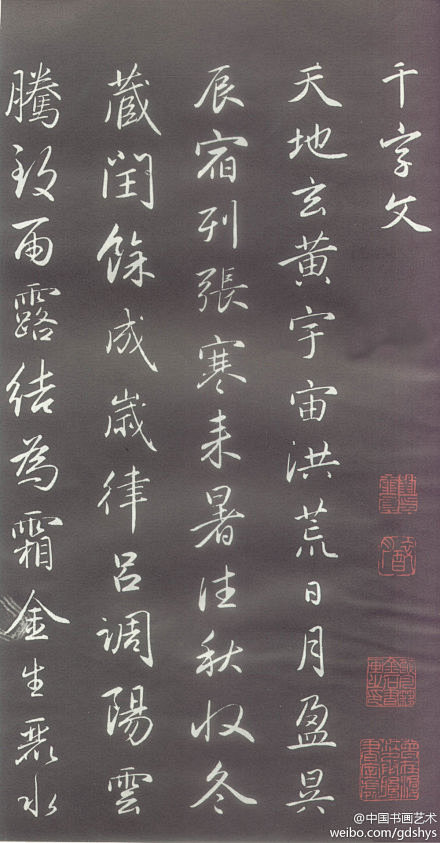 千字文
天地玄黃宇宙洪荒日月盈昃
辰宿列張寒来暑往秋收冬
藏閏餘成歲律呂調陽雲
騰致雨露結為霜金生麗水
@中国书画艺术
weibo.com/gdshys